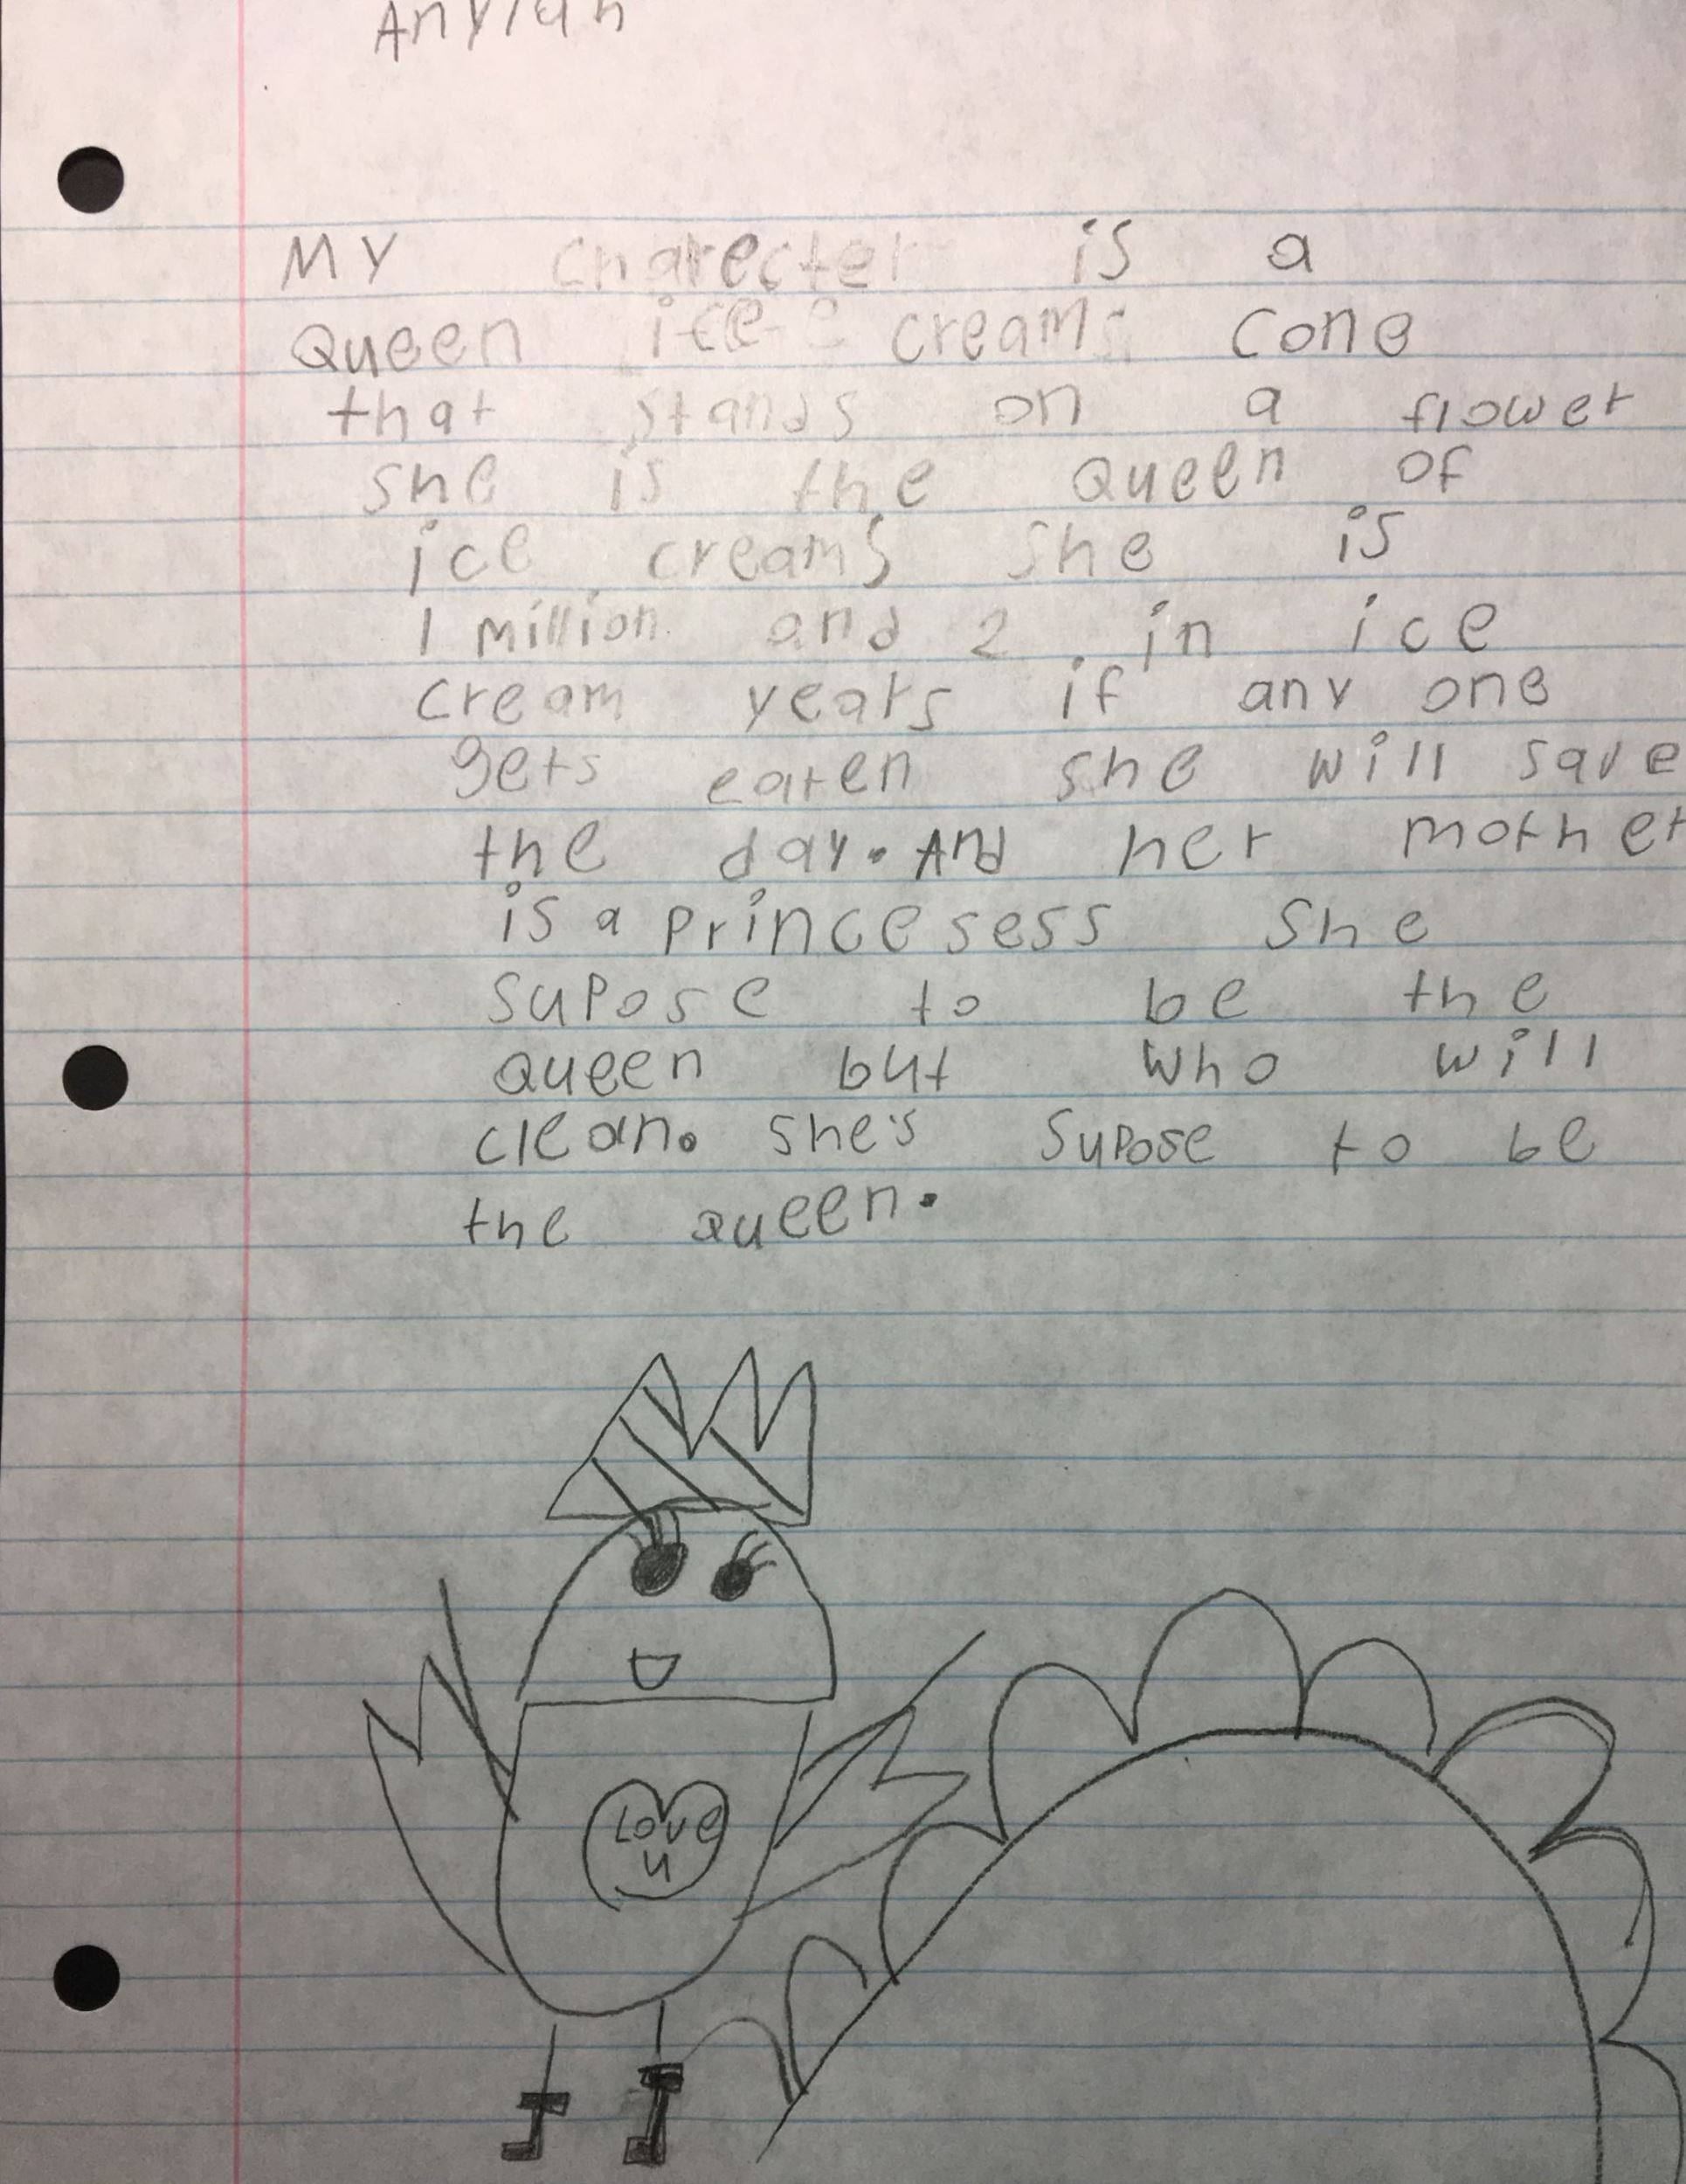 Anylah
My charecter is a
Queen ice creams cone
that stands on a flower
she is the Queen of
ice creams she is
1 million and 2 in ice
cream years if any one
gets eaten she will save
the day. And her mother
is a princesess she
supose to be the
queen but who will
clean. she's supose to be
the queen.
Love
u